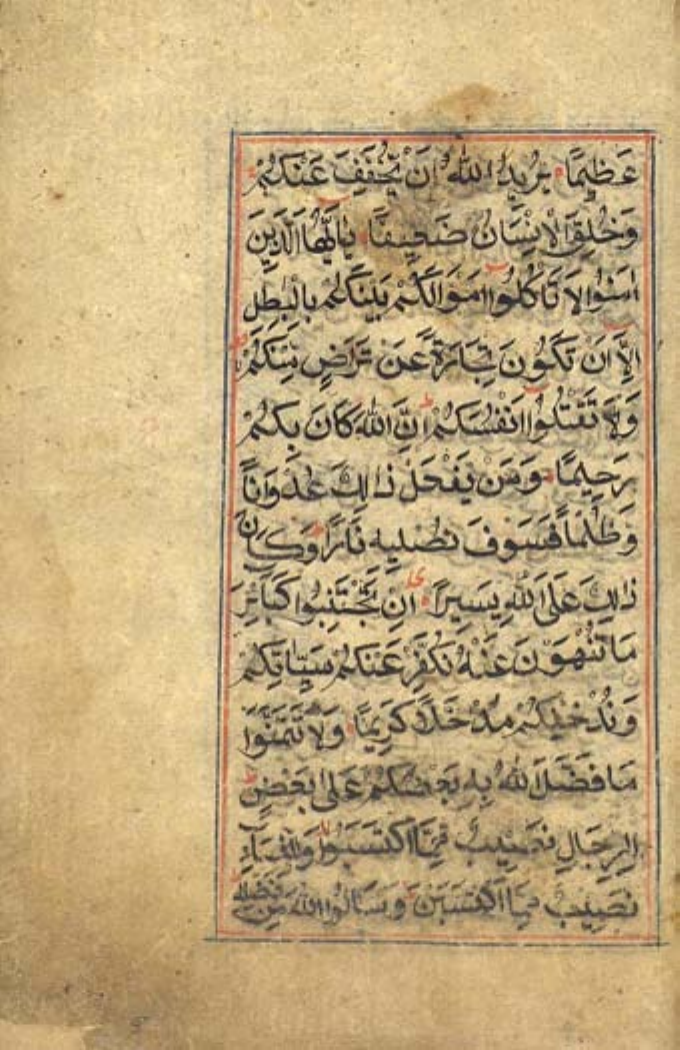 عَظِيمًا يُرِيدُ اللهُ اَنْ يُخَفِّفَ عَنْكُمْ
وَخُلِقَ الْاِنْسَانُ ضَعِيفًا يٰاَيُّهَا الَّذِينَ
اٰمَنُوا لَا تَاْكُلُوا اَمْوَالَكُمْ بَيْنَكُمْ بِالْبَطِلِ
اِلَّا اَنْ تَكُونَ تِجَارَةً عَنْ تَرَاضٍ مِنْكُمْ
وَلَا تَقْتُلُوا اَنْفُسَكُمْ اِنَّ اللهَ كَانَ بِكُمْ
رَحِيمًا وَمَنْ يَفْعَلْ ذٰلِكَ عُدْوَانًا
وَظُلْمًا فَسَوْفَ نُصْلِيهِ نَارًا وَكَانَ
ذٰلِكَ عَلَى اللهِ يَسِيرًا اِنْ تَجْتَنِبُوا كَبَائِرَ
مَا تُنْهَوْنَ عَنْهُ نُكَفِّرْ عَنْكُمْ سَيِّاٰتِكُمْ
وَنُدْخِلْكُمْ مُدْخَلًا كَرِيمًا وَلَا تَتَمَنَّوْا
مَا فَضَّلَ اللهُ بِهِ بَعْضَكُمْ عَلٰى بَعْضٍ
لِلرِّجَالِ نَصِيبٌ مِمَّا اكْتَسَبُوا وَلِلنِّسَاءِ
نَصِيبٌ مِمَّا اكْتَسَبْنَ وَسْـَٔلُوا اللهَ مِنْ فَضْلِهِ